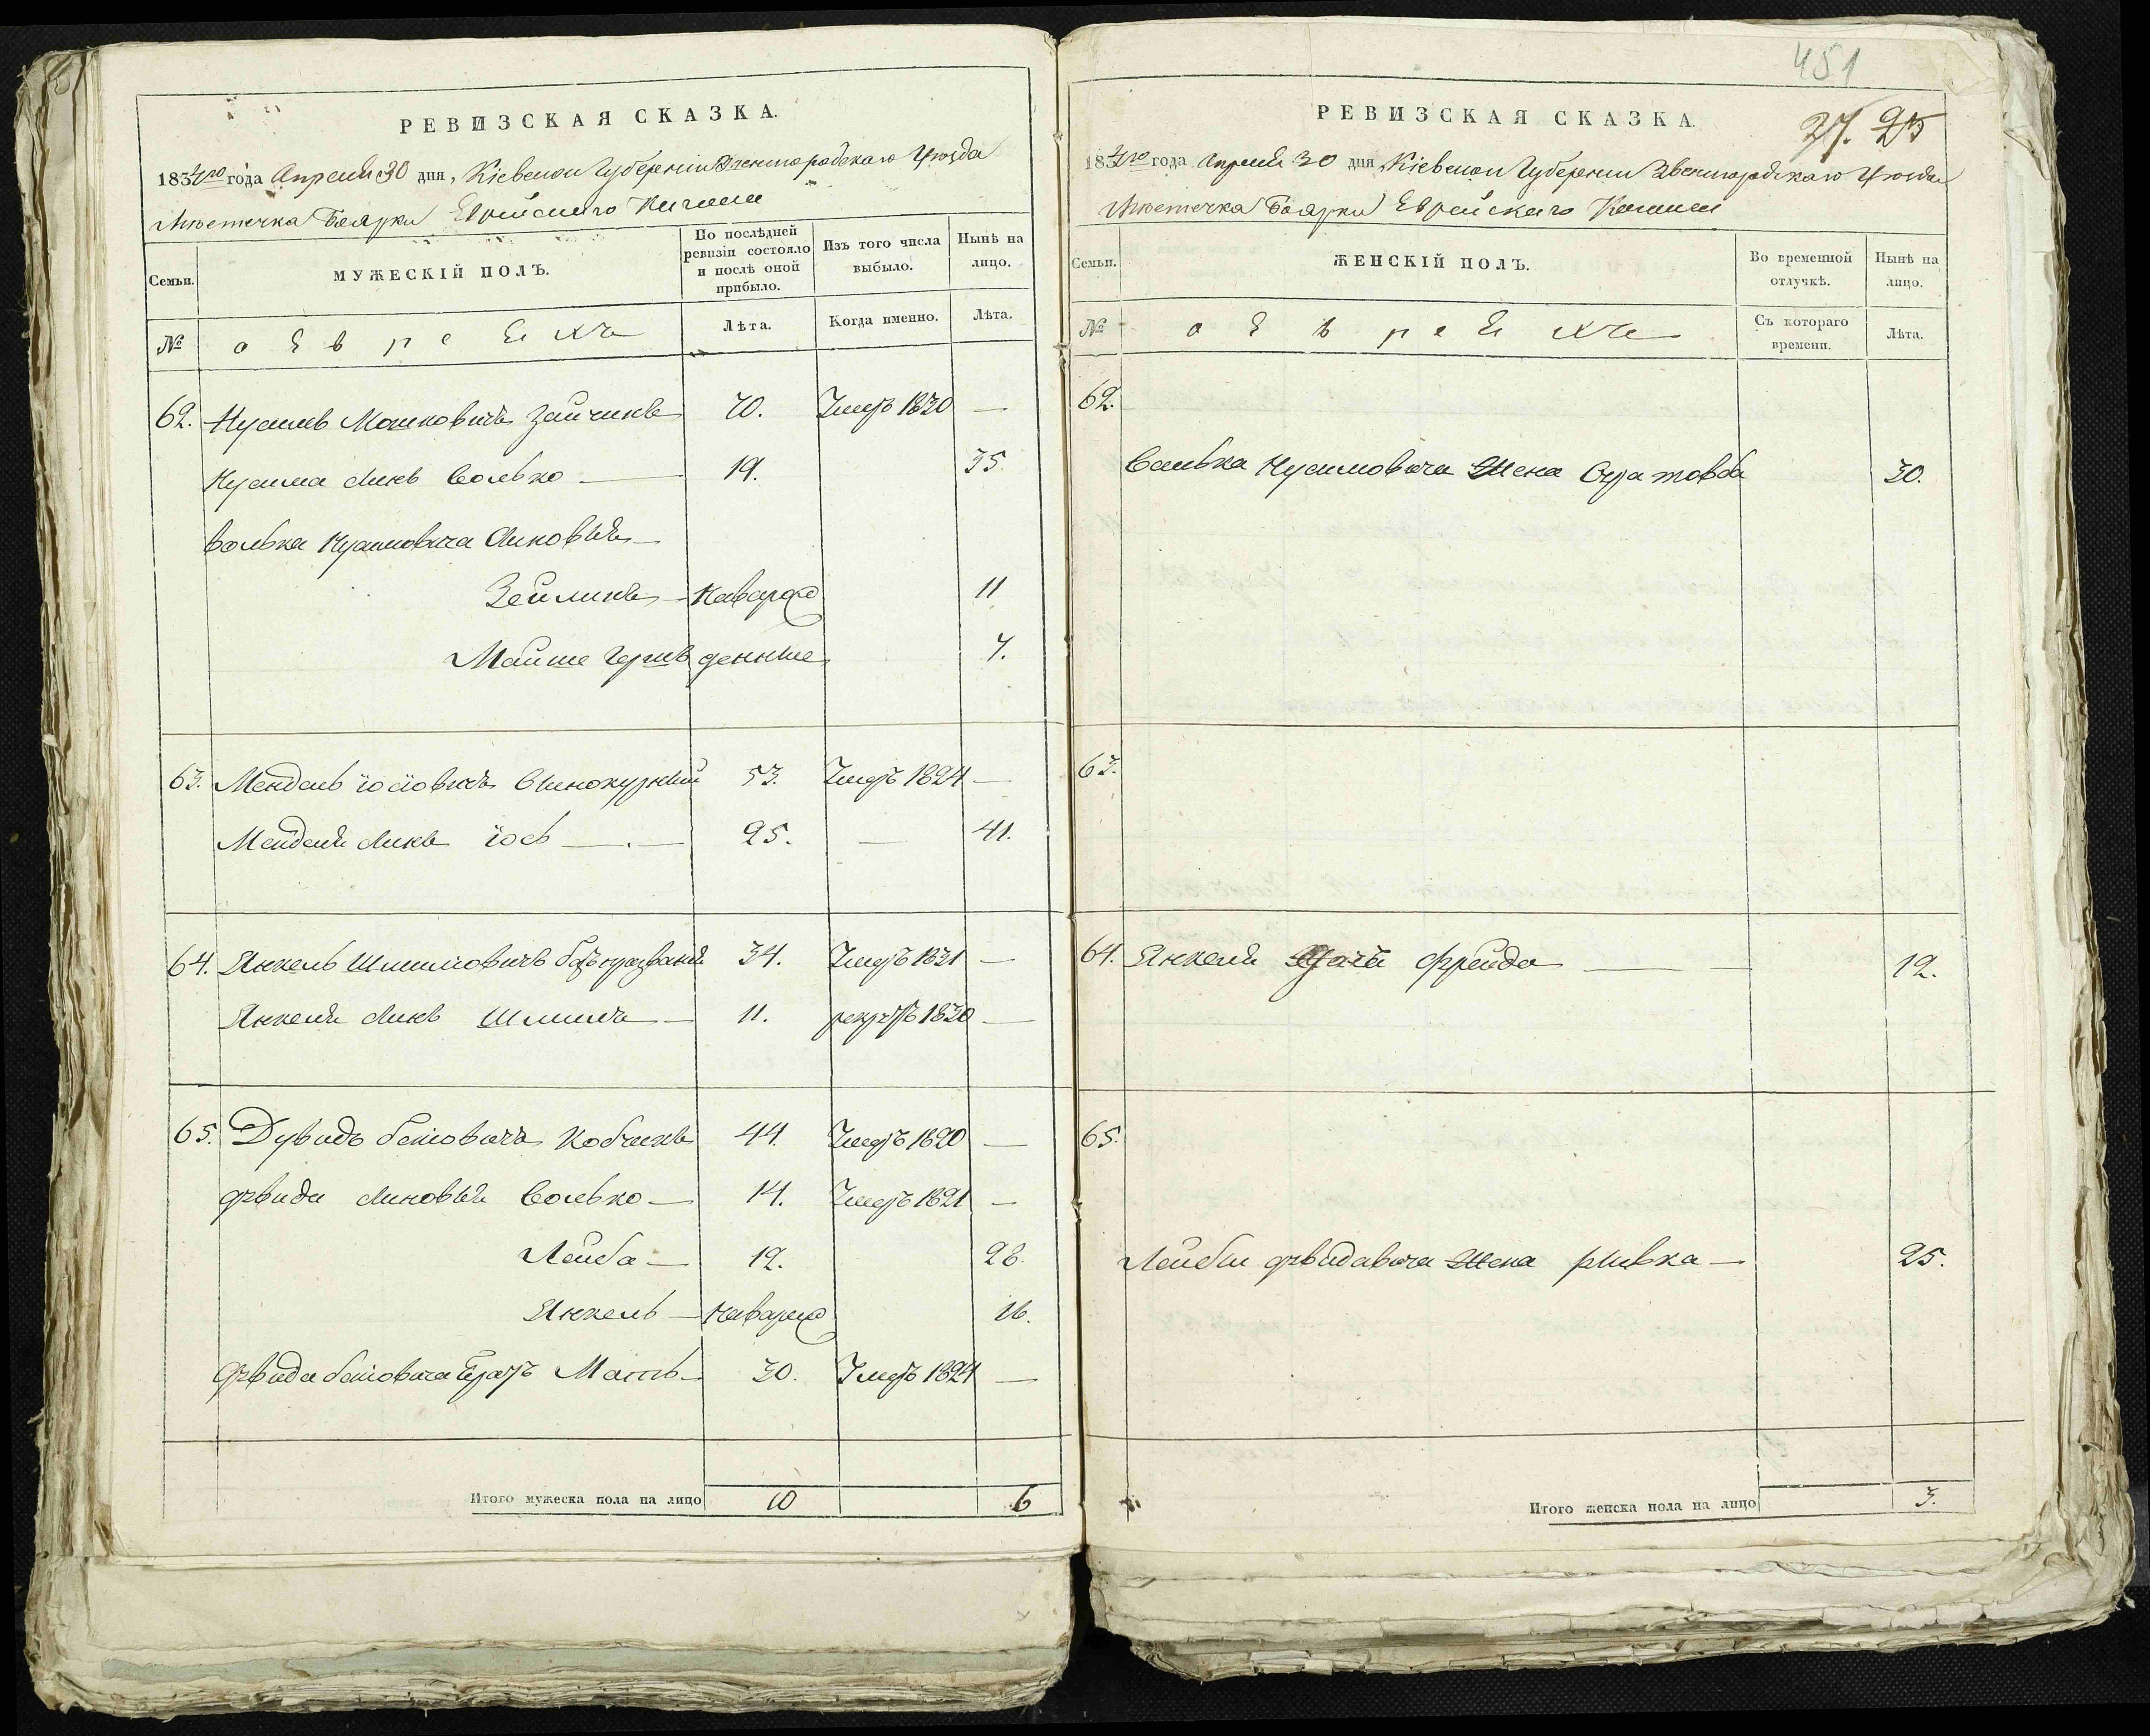 РЕВИЗСКАЯ СКАЗКА.
1834го года Апреля 30 дня, Кіевской Губерніи Звенигородскаго Уезда
Местечка Боярки Еврейскаго Кагала
Семьи.
МУЖЕСКІЙ ПОЛЪ.
По послѣдней ревизіи состояло и послѣ оной прибыло.
Изъ того числа выбыло.
Нынѣ на лицо.
№
о Евреяхъ
Лѣта.
Когда именно.
Лѣта.
62. Нусимъ Мошковичъ Зайчикъ 70. Умеръ 1830 —
Нусима сынъ Волько — 19. 35.
Волька Нусимовича сыновья —
Зейликъ — Новорож 11
Мойше денные 7.
63. Мендель Іосіовичъ Винокурный 53. Умеръ 1824 —
Менделя сынъ Іось — 25. — 41.
64. Янкель Шмиловичъ 34. Умеръ 1831 —
Янкеля сынъ Шмиль — 11. 1830 —
65. Дувидъ Беніовичъ Кобчикъ 44. Умеръ 1820 —
Дувида сыновья Волько — 14. Умеръ 1821 —
Лейба — 12. 28.
Янкель — Новорож 16.
Дувида Беніовича братъ Мать — 30. Умеръ 1824 —
Итого мужеска пола на лицо 10 6
451
27. 25
РЕВИЗСКАЯ СКАЗКА.
1834го года Апреля 30 дня, Кіевской Губерніи Звенигородскаго Уезда
Местечка Боярки Еврейскаго Кагала
Семьи.
ЖЕНСКІЙ ПОЛЪ.
Во временной отлучкѣ.
Нынѣ на лицо.
№
о Евреяхъ
Съ котораго времени.
Лѣта.
62.
Волька Нусимовича жена 30.
63.
64. Янкеля дочь Фрейда — 12.
65.
Лейбы Дувидовича жена Ривка — 25.
Итого женска пола на лицо 3.